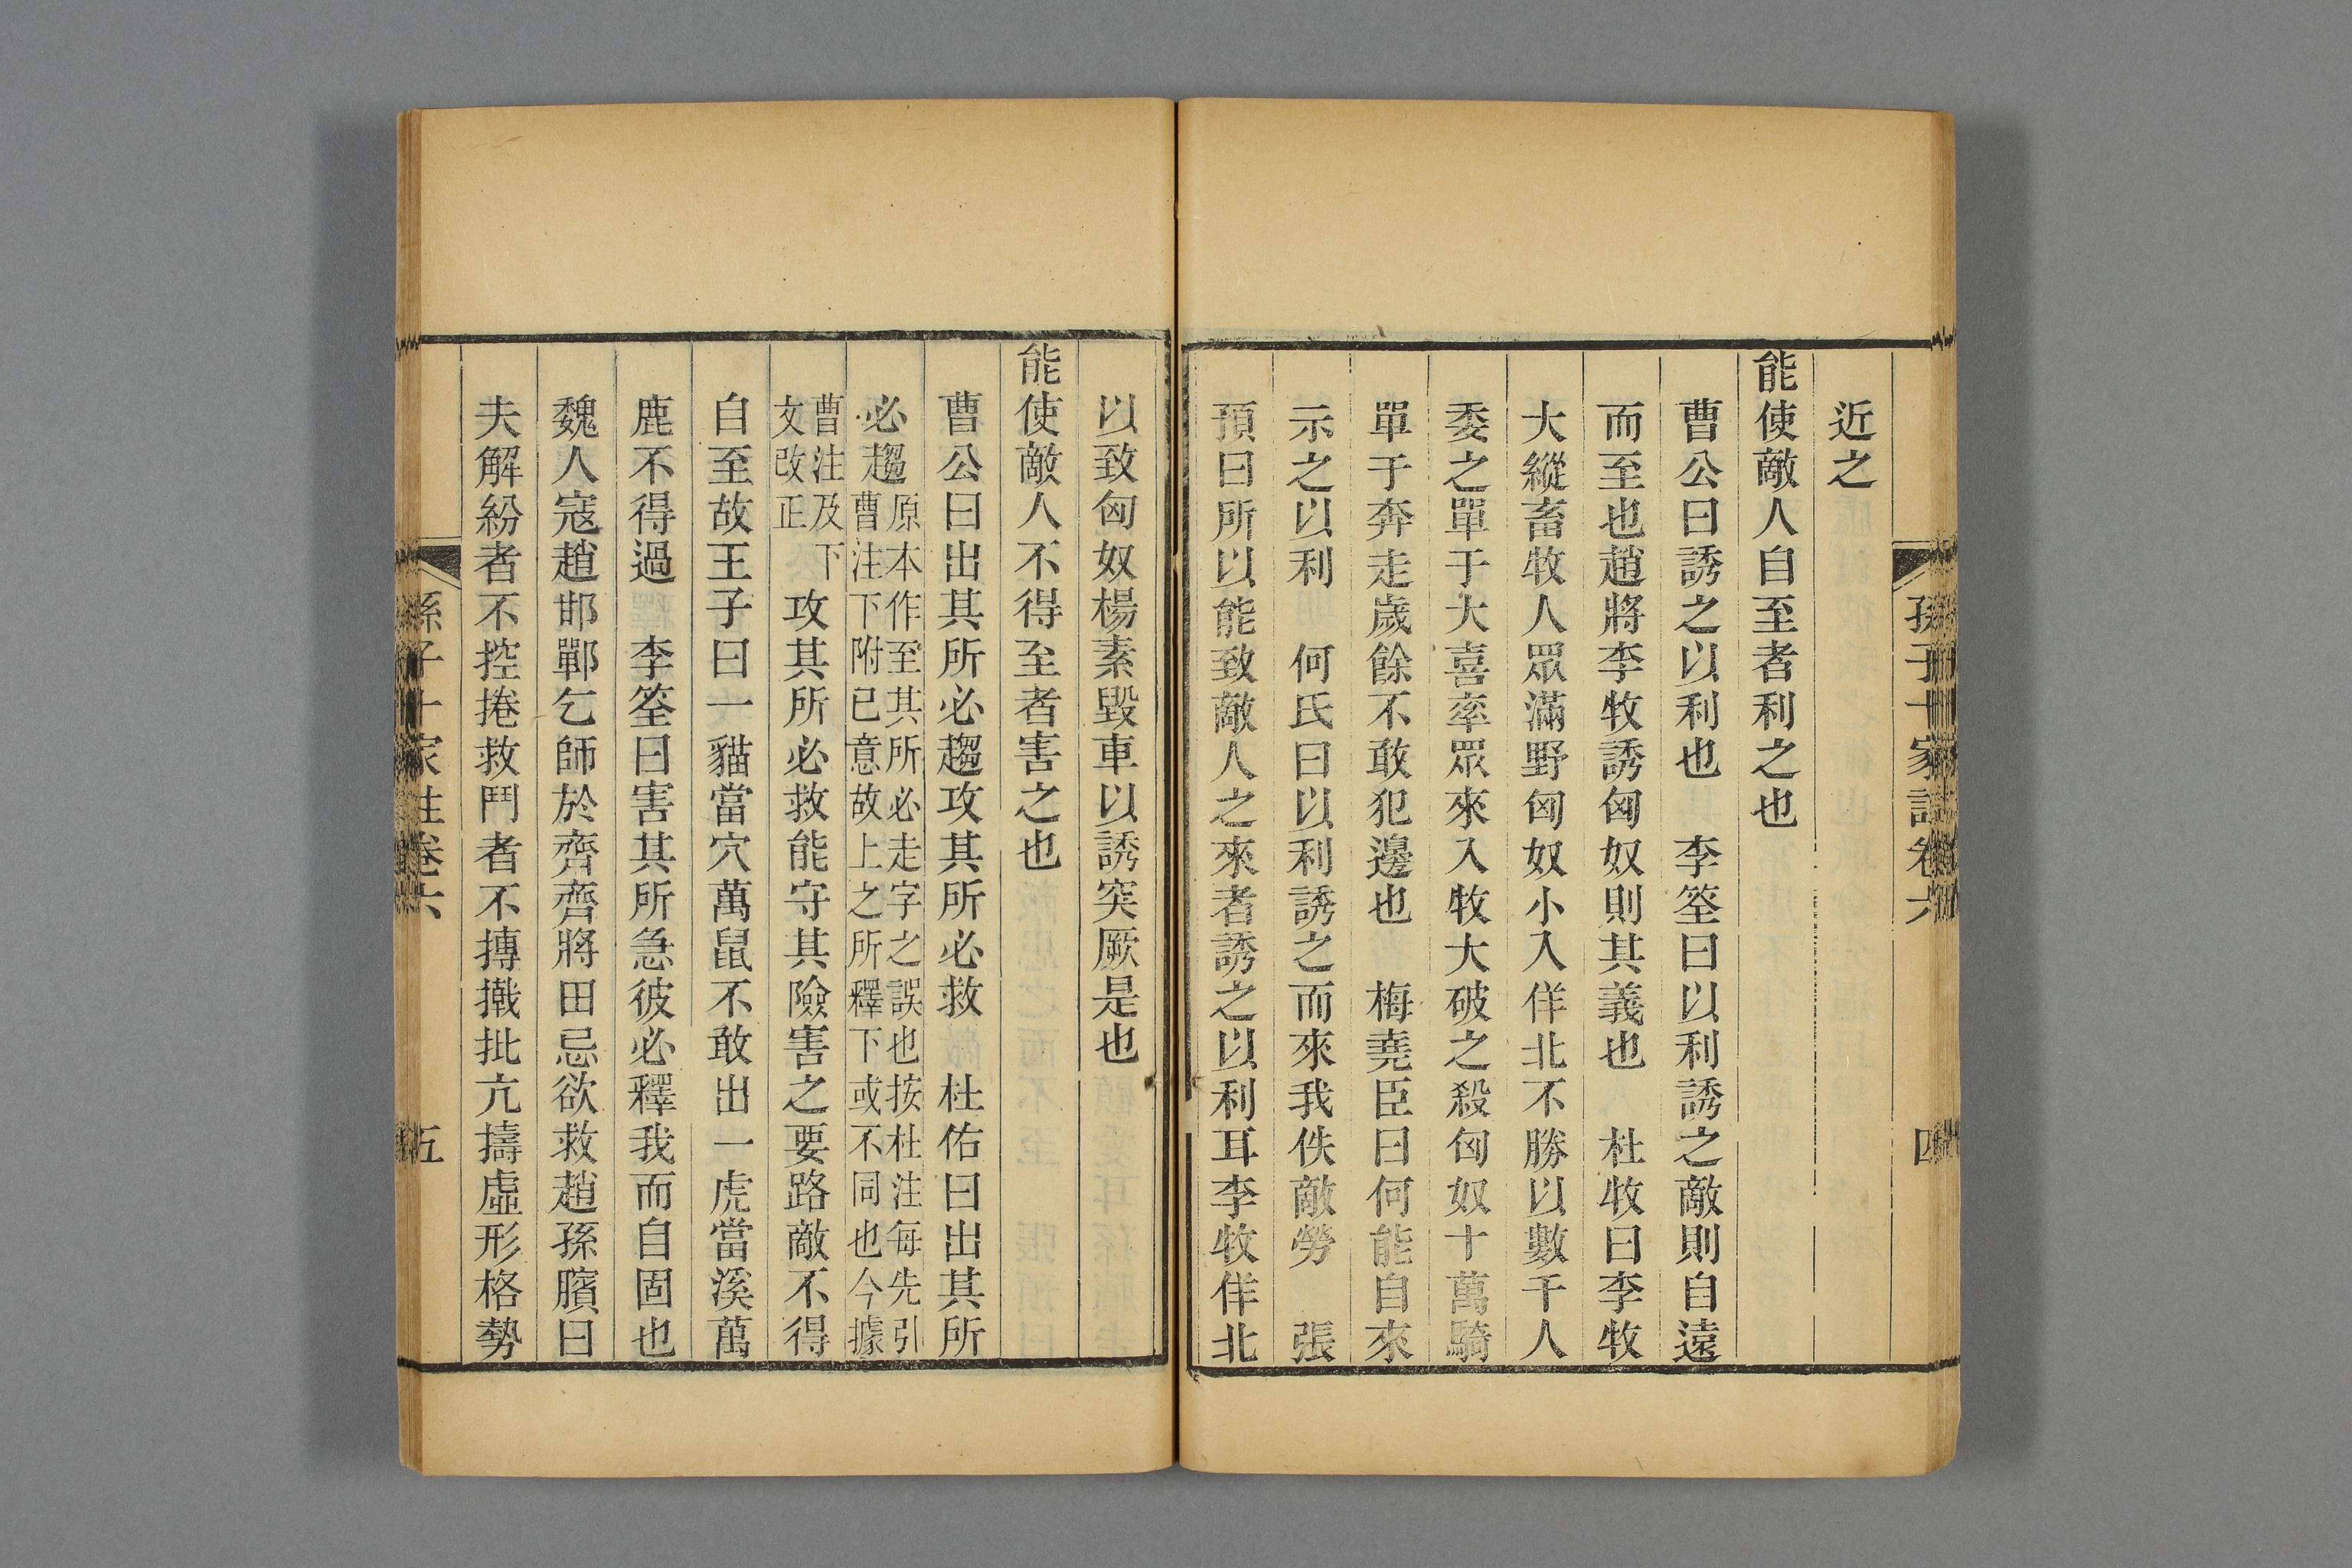 孫子十家註卷六
四
近之
能使敵人自至者利之也
曹公曰誘之以利也 李筌曰以利誘之敵則自遠
而至也趙將李牧誘匈奴則其義也 杜牧曰李牧
大縱畜牧人眾滿野匈奴小入佯北不勝以數千人
委之單于大喜率眾來入牧大破之殺匈奴十萬騎
單于奔走歲餘不敢犯邊也 梅堯臣曰何能自來
示之以利 何氏曰以利誘之而來我佚敵勞 張
預曰所以能致敵人之來者誘之以利耳李牧佯北
以致匈奴楊素毀車以誘突厥是也
能使敵人不得至者害之也
曹公曰出其所必趨攻其所必救 杜佑曰出其所
必趨
原本作至其所必走字之誤也按杜注每先引
曹注下附已意故上之所釋下或不同也今據
曹注及下
文改正
攻其所必救能守其險害之要路敵不得
自至故王子曰一貓當穴萬鼠不敢出一虎當溪萬
鹿不得過 李筌曰害其所急彼必釋我而自固也
魏人寇趙邯鄲乞師於齊齊將田忌欲救趙孫臏曰
夫解紛者不控捲救鬥者不摶撠批亢擣虛形格勢
孫子十家註卷六
五